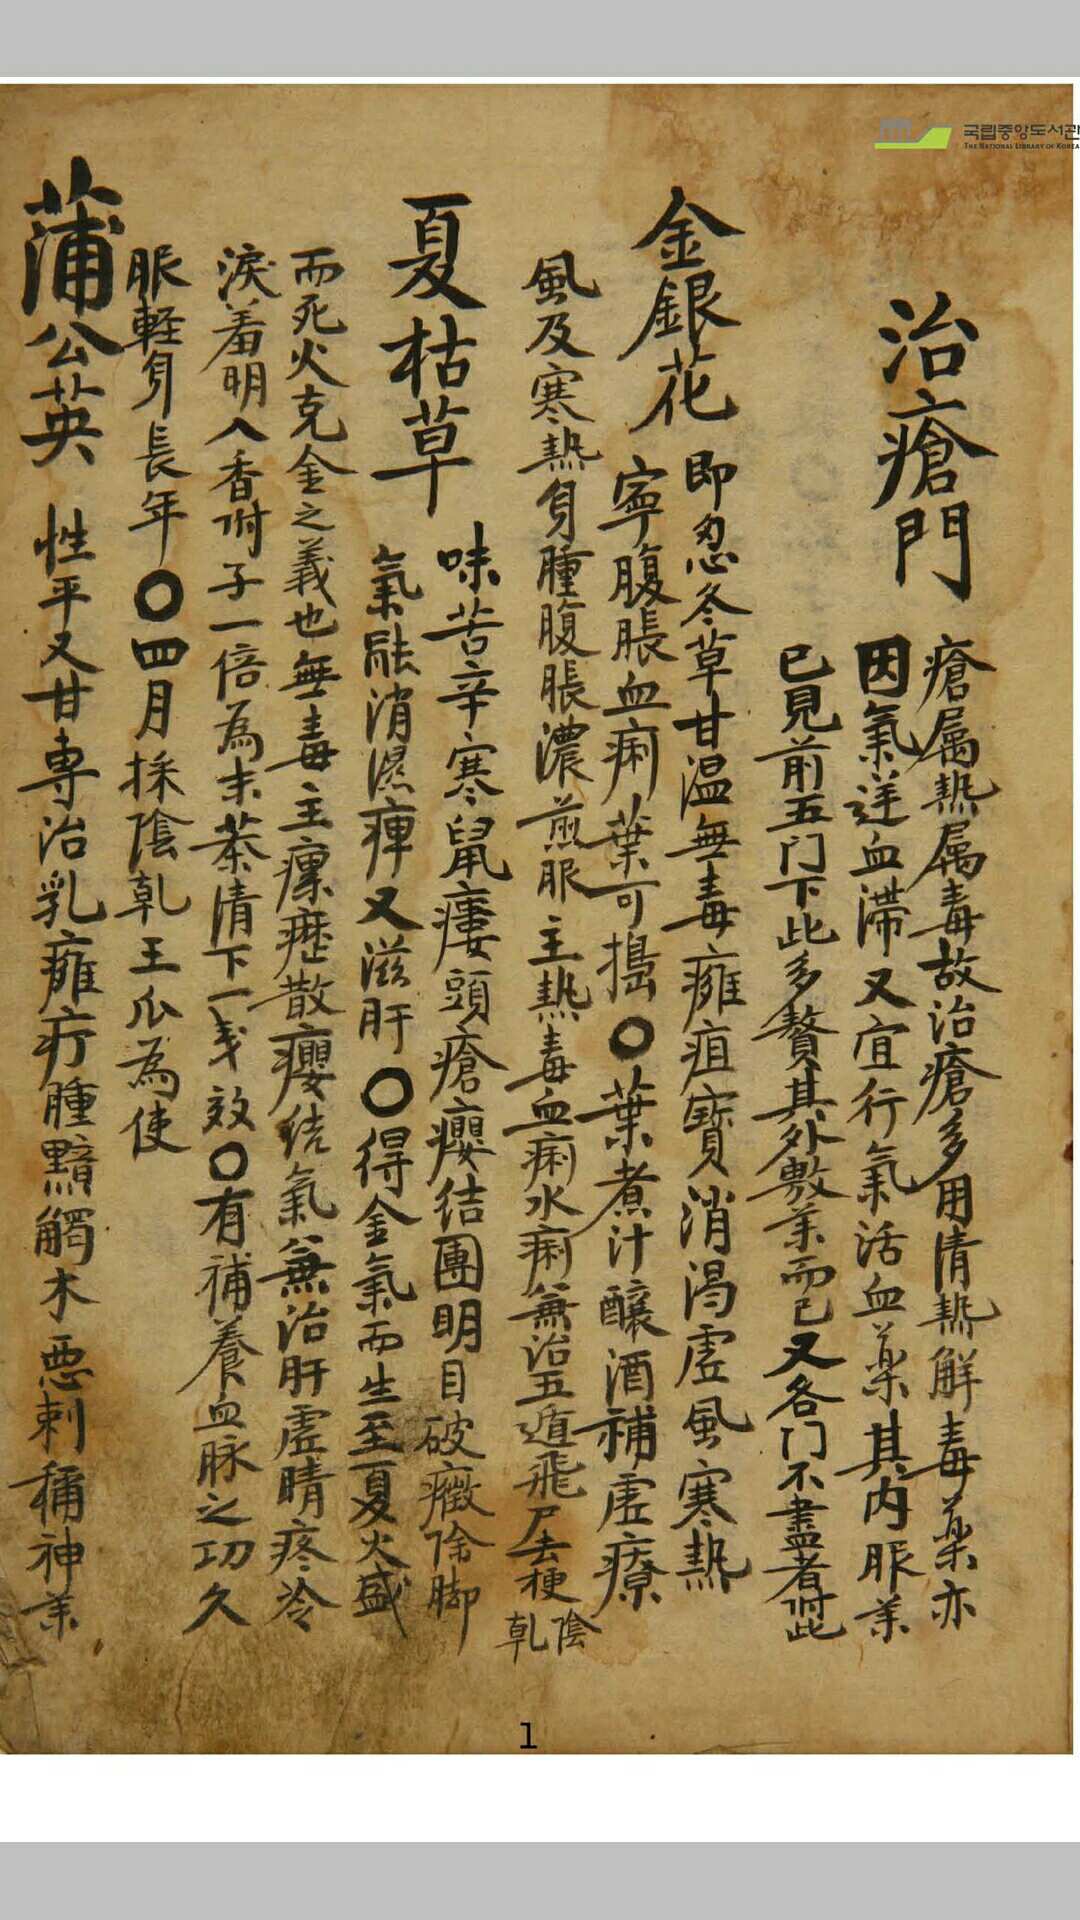 국립중앙도서관
THE NATIONAL LIBRARY OF KOREA
治瘡門
瘡属熱属毒故治瘡多用清熱解毒薬亦
因氣逆血滯又宜行氣活血薬其内服薬
已見前五门下此多贅其外敷薬而已又各门不盡者附此
金銀花
即忍冬草甘温無毒癰疽寶消渴虛風寒熱
寧腹脹血痢葉可搗〇葉煮汁釀酒補虛療
風及寒熱身腫腹脹濃煎服主熱毒血痢水痢兼治五遁飛尸去梗陰乾
夏枯草
味苦辛寒鼠瘻頭瘡癭結團明目破癥除脚
氣融消濕痺又滋肝〇得金氣而生至夏火盛
而死火克金之義也無毒主瘰癧散癭结氣兼治肝虛睛疼冷
淚羞明入香附子一倍為末茶清下一戔效〇有補養血脉之功久
服軽身長年〇四月採陰乾王瓜為使
蒲公英
性平又甘専治乳癰疔腫黯觸木悪刺稱神薬
1